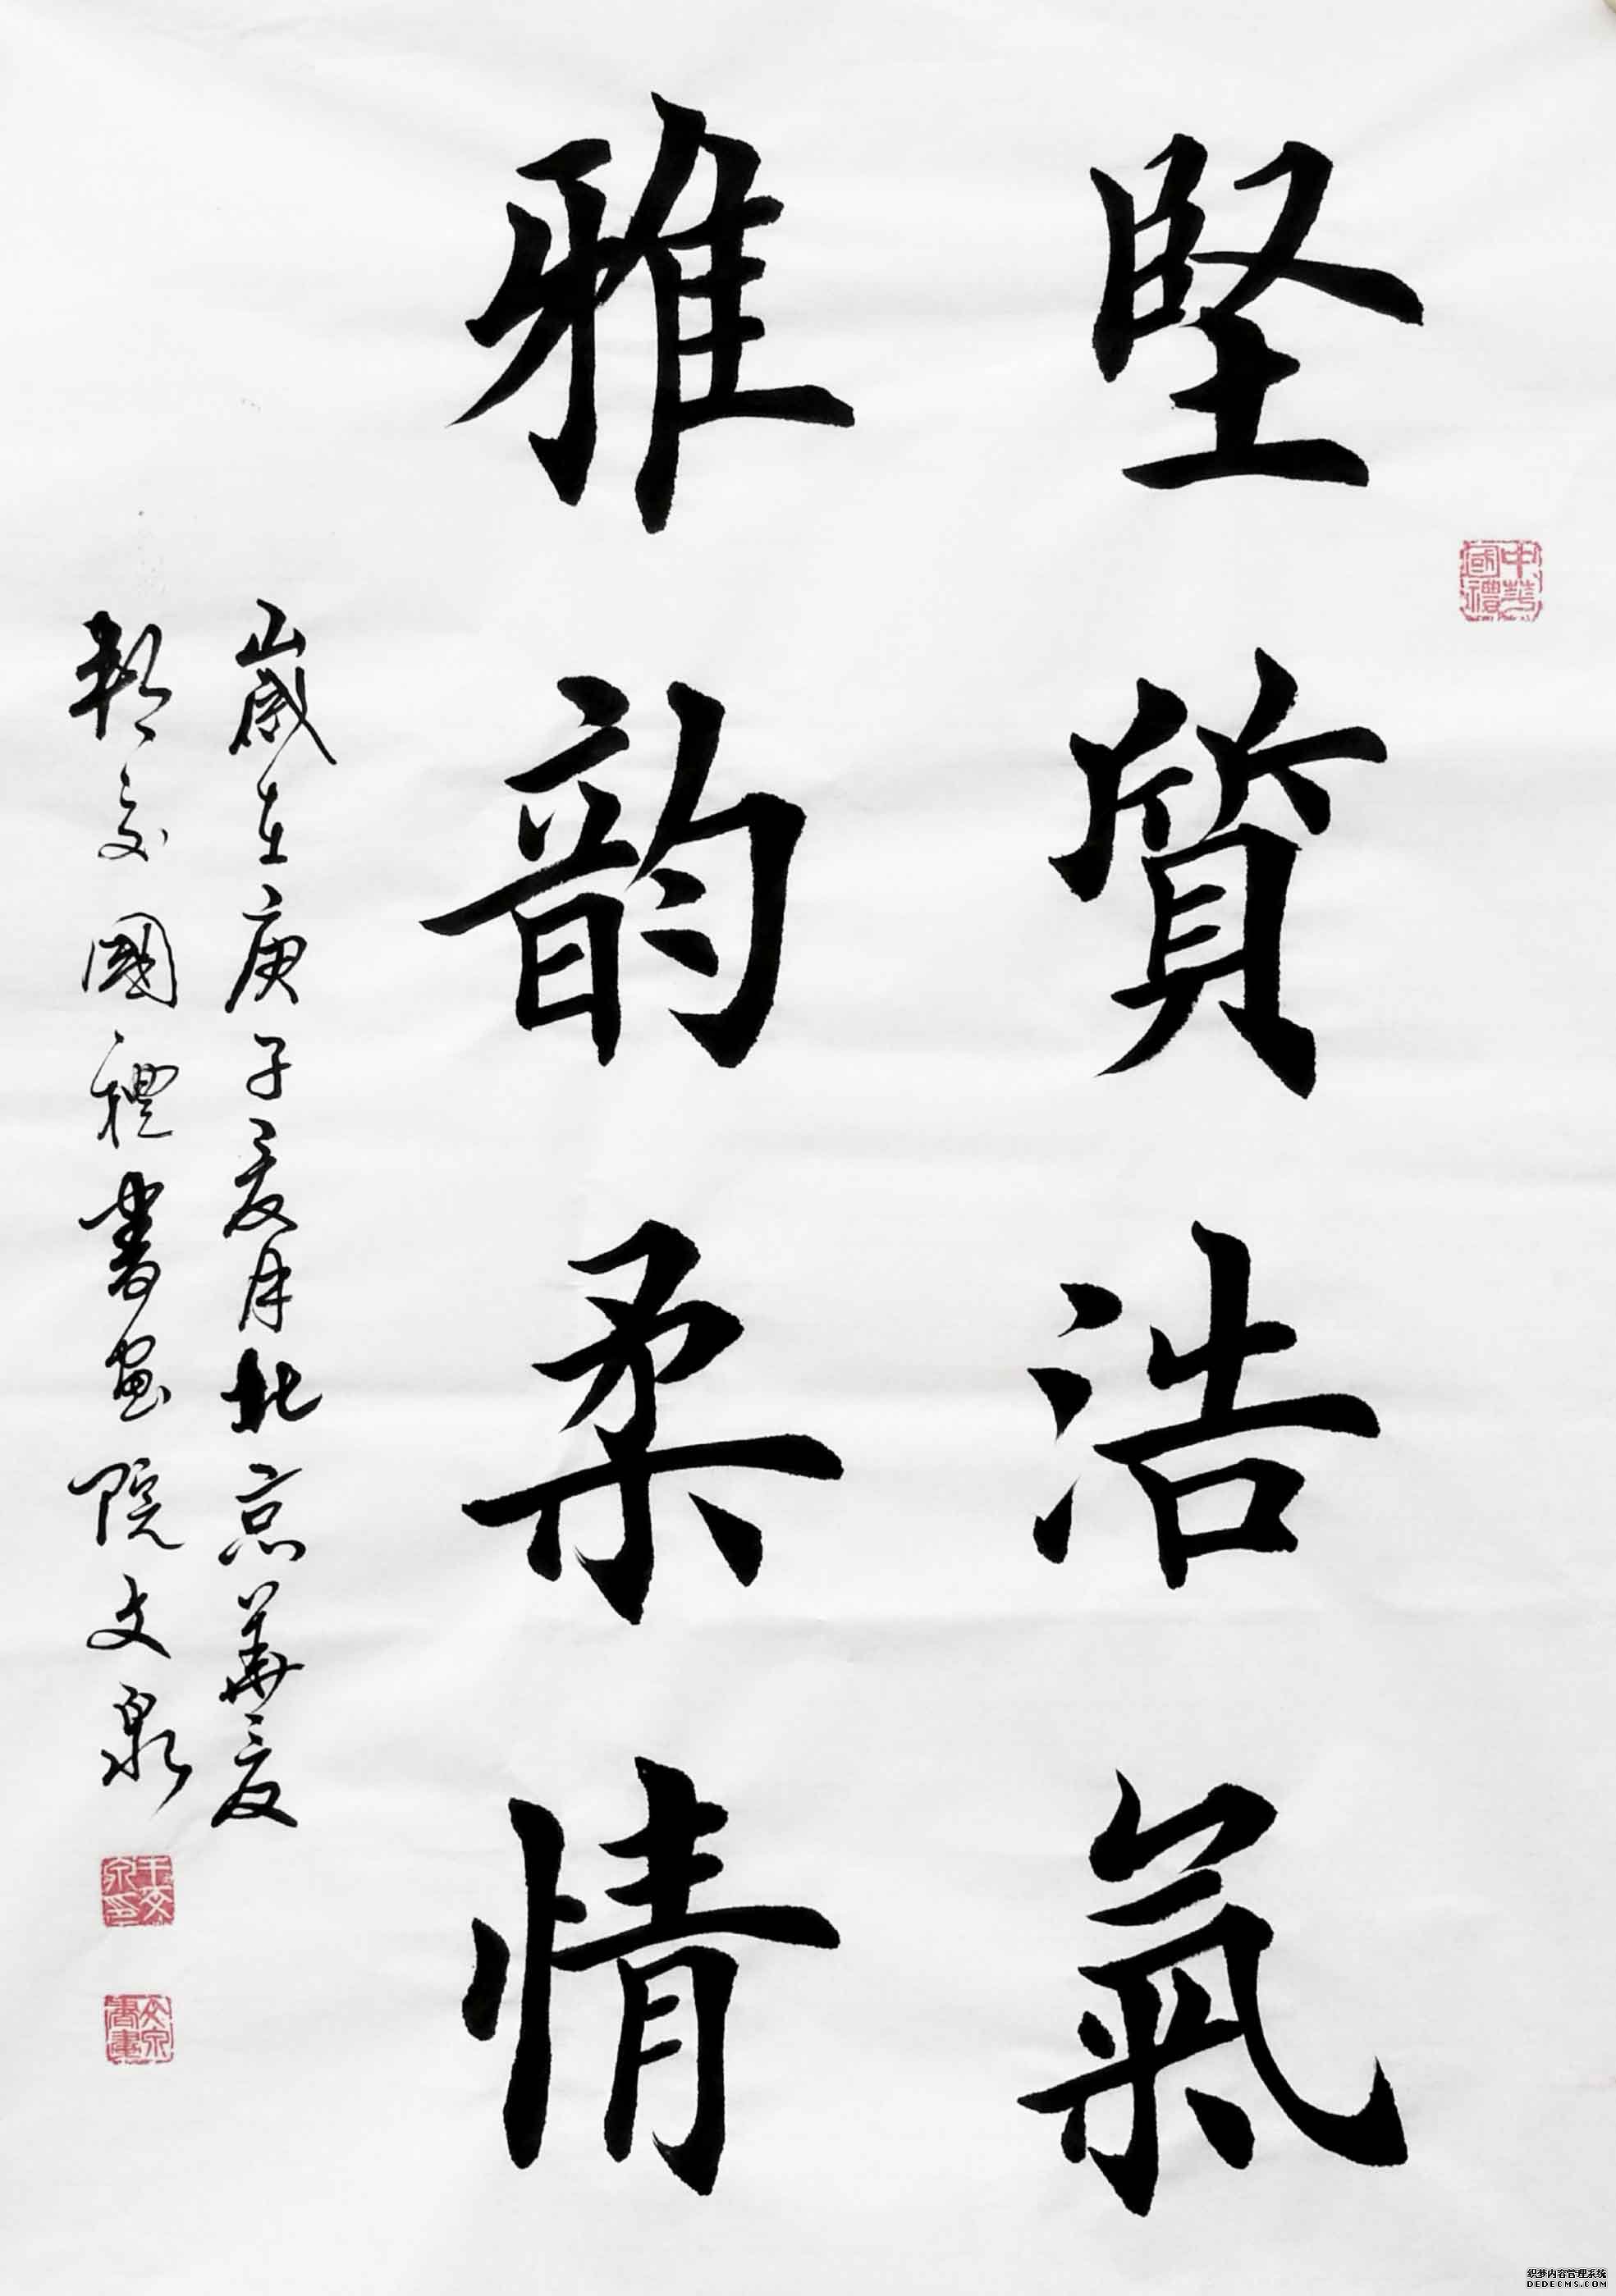 堅質浩氣
雅韵柔情
歲在庚子夏月北京華夏
邦交國禮書畫院文泉
中華國禮
王文泉印
文泉書畫
织梦内容管理系统
DEDECMS.COM